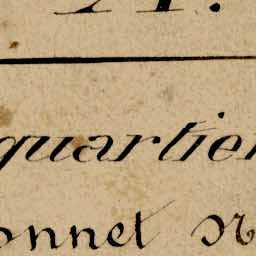 quartier
onnel N